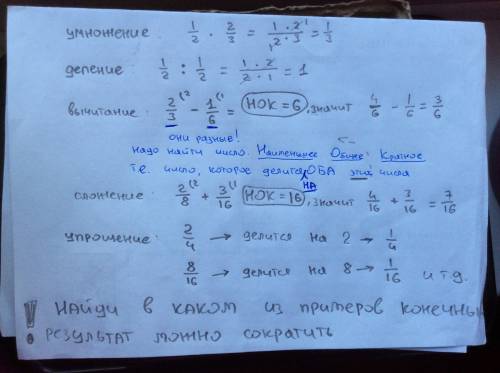 умножение: 1/2 · 2/3 = 1·2/2·3 = 1/3
деление: 1/2 : 1/2 = 1·2/2·1 = 1
вычитание: 2/3 (2 - 1/6 (1 = НОК = 6, значит 4/6 - 1/6 = 3/6
они разные!
надо найти число. Наименьшее Общее Кратное
т.е. число, которое делится НА ОБА эти числа
сложение: 2/8 (2 + 3/16 (1 НОК = 16, значит 4/16 + 3/16 = 7/16
упрощение: 2/4 → делится на 2 → 1/4
8/16 → делится на 8 → 1/16 и т.д.
! НАЙДИ В КАКОМ ИЗ ПРИМЕРОВ КОНЕЧНЫЙ
РЕЗУЛЬТАТ МОЖНО СОКРАТИТЬ